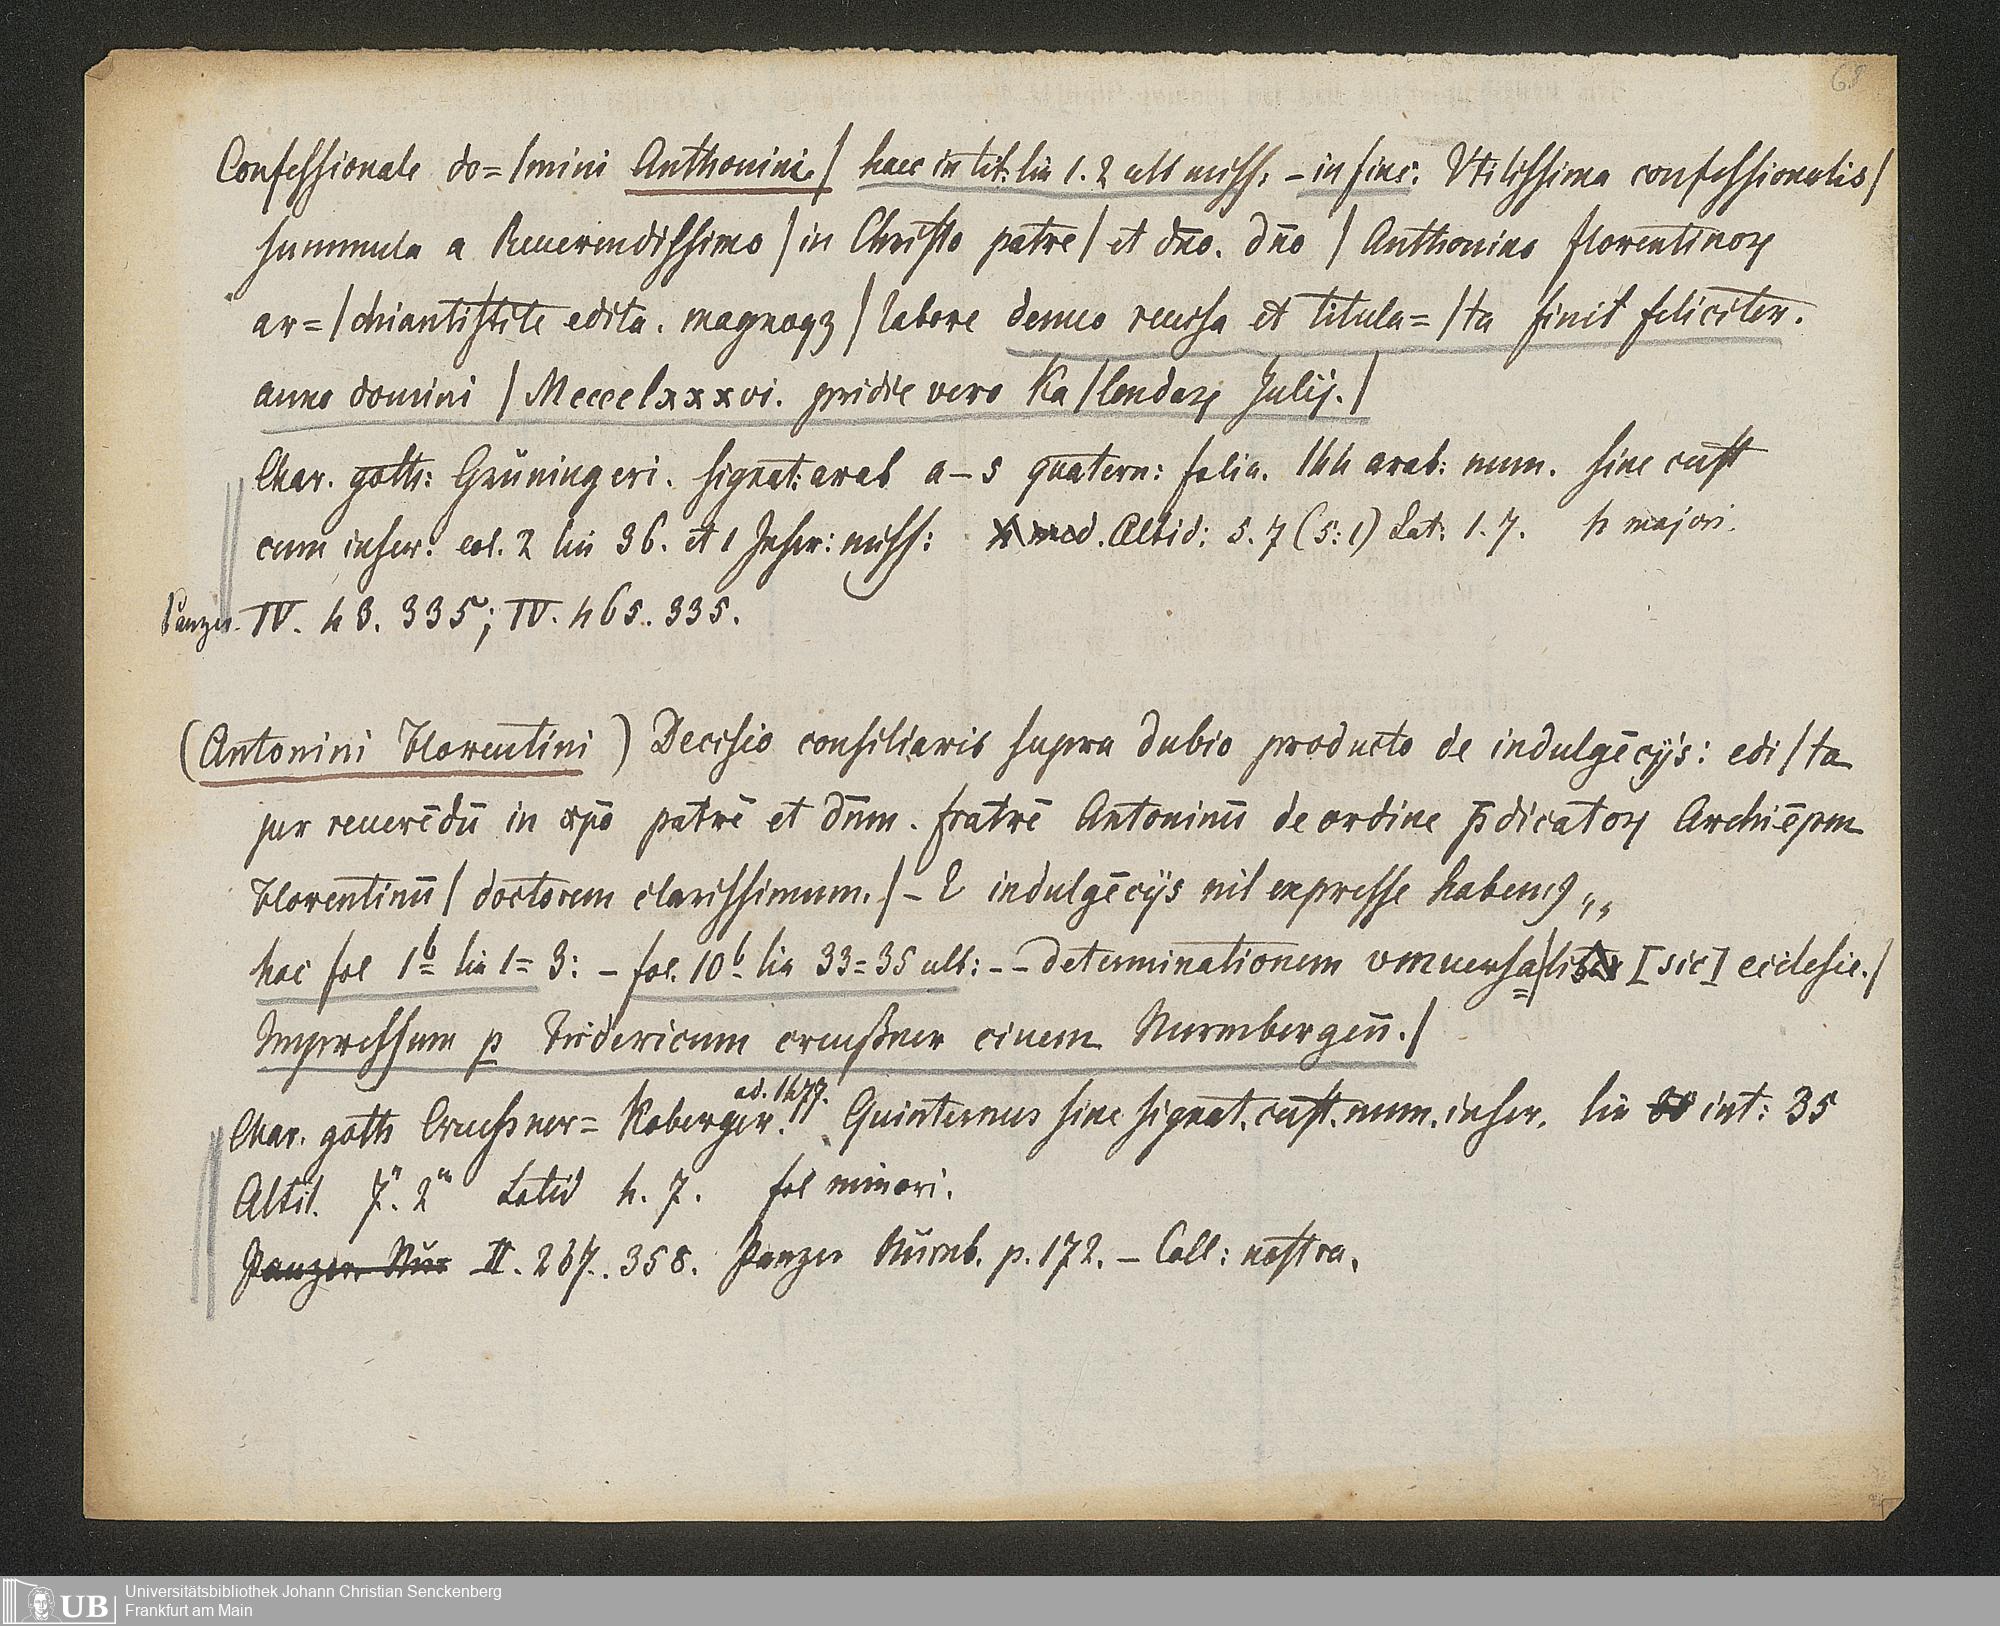 68
Confessionale do=/mini Anthonini./ haec in tit: lin 1. 2 alt miss: – in fine: Vtilissima confessionalis/
summula a Reuerendissimo / in Christo patre / et dño. dño / Anthonino florentinoꝝ
ar=/chiantistite edita. magnoqꝫ / labore denuo reuisa et titula=/ta finit feliciter.
anno domini / Mcccclxxxvi. pridie vero Ka/lendaꝝ Julij./
Char. goth: Grüningeri. signat: arab a–s quatern: folia. 144 arab: num. sine cust
cum inscr: col. 2 lin 36. et 1 Inscr: miss: Altid: 5. 7 (5:1) Lat: 1. 7. 4 majori.
Panzer. IV. 43. 335; IV. 465. 335.
(Antonini Florentini) Decisio consiliaris supra dubio producto de indulgēcijs: edi/ta
per reuerēdū in xpō patrē et dñm. fratrē Antoninū de ordine p̄dicatoꝝ Archiēpm
Florentinū / doctorem clarissimum./ – 2 indulgēcijs nil expresse habens,,
hoc fol 1b lin 1=3: – fol. 10b lin 33=35 ult: – – determinationem vniuersa/lis [sic] ecclesie./
Impressum p Fridericum creußner ciuem Nurmbergeñ./
Char. goth Creußner= Koberger. ad. 1477. Quinternus sine signat. cust. num. inscr. lin int: 35
Altit. 7". 2''' Latid 4. 7. fol minori.
Panzer Nür II. 237. 358. Panzer Nürnb. p. 172. – Coll: nostra.
UB Universitätsbibliothek Johann Christian Senckenberg
Frankfurt am Main